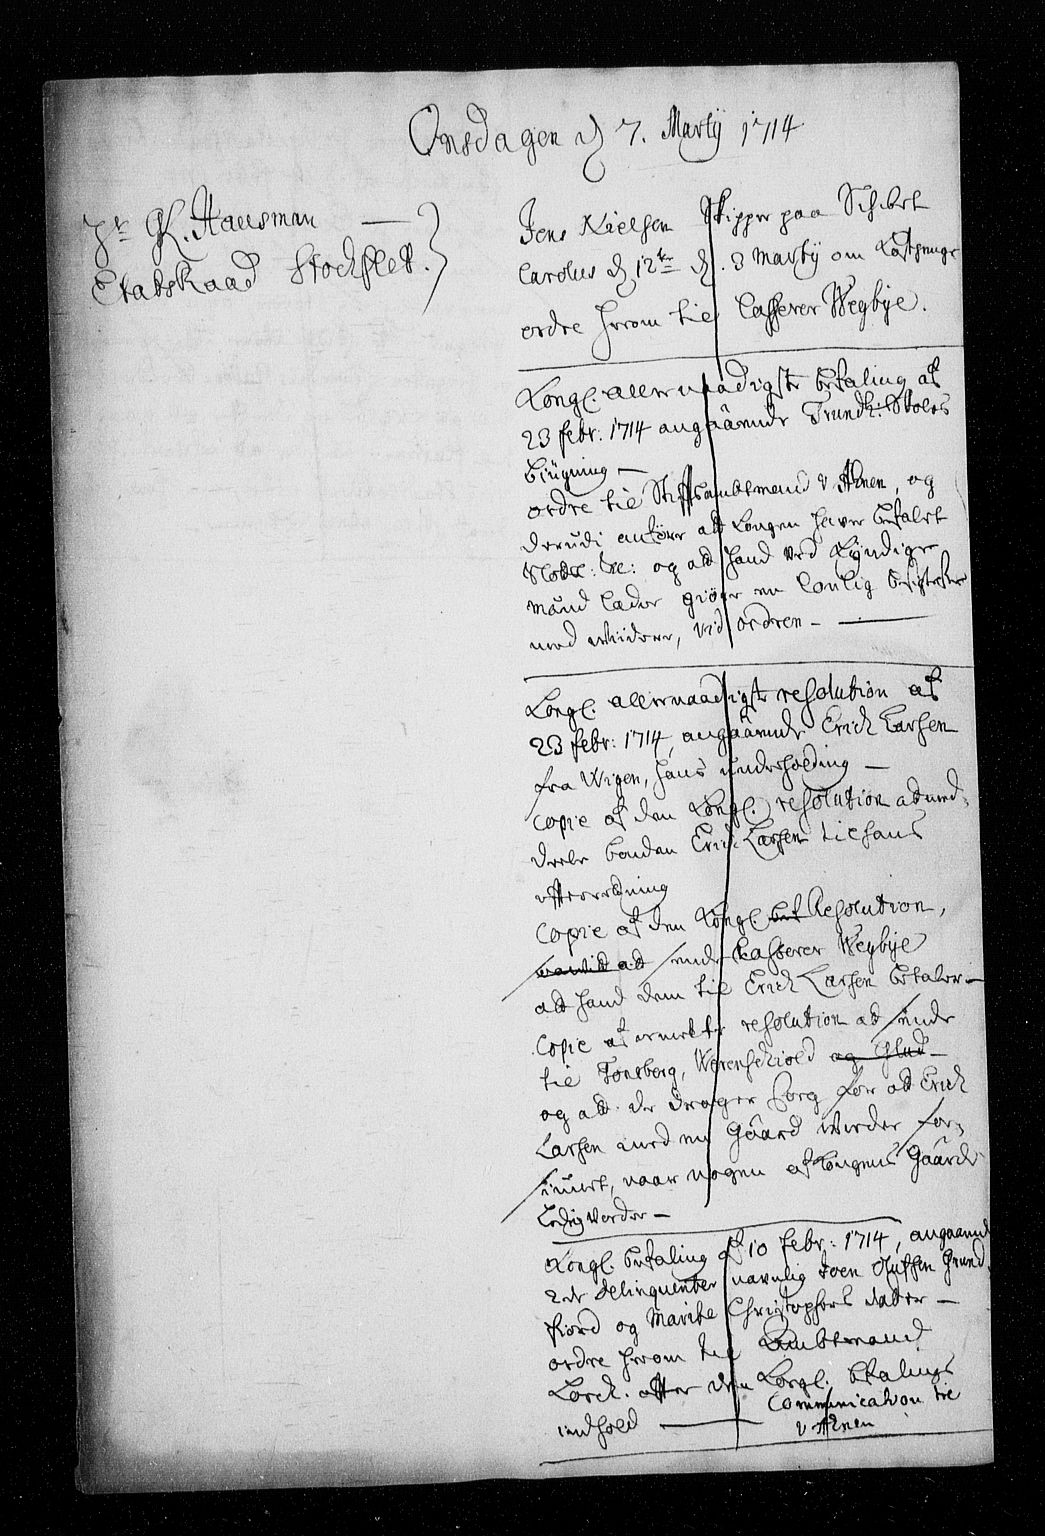 Onsdagen d 7. Martij 1714
Hr GL. Hausman —
Etatsraad Stockflet.
Jens Nielsen Skipper paa Schibet
Carolus d 12te d. 3 Martij om
ordre herom til Casserer Wegbye.
Kongl. allernaadigste befaling af
23 febr: 1714 angaaende Trundh: Skoles
biugning —
ordre til Stiftsambtmand v Ahnen, og
derudi anföre att Kongen hafver befalet
Slodtz: &c: og att hand ved Kyndige
mænd lader giöre en lovlig besigtelse
med widere, vid ordren —
Kongl. allernaadigste resolution af
23 febr: 1714, angaaende Erich Larsen
fra Wigen, hans underholding —
Copie af den Kongl. resolution at med-
deele bonden Erich Larsen til hans
efterretning
Copie af den Kongl. bef Resolution,
sende Casserer Wegbye
att hand dem til Erich Larsen betaler —
Copie af ermelte resolution at sende
til Tonsberg, Werenschiold og Glud —
og att de drager Sorg for at Erich
Larsen med en Gaard worder for-
siunet, naar nogen af Kongens Gaarde
Ledig vorder —
Kongl. befaling af 10 febr: 1714, angaaende
2de Delinquenter navnlig Joen Olufsen Grund-
fiord og Marite Christophers datter —
ordre herom til Ambtmand
Lorck. efter den Kongl. befalings
indhold — Communication til
v Ahnen